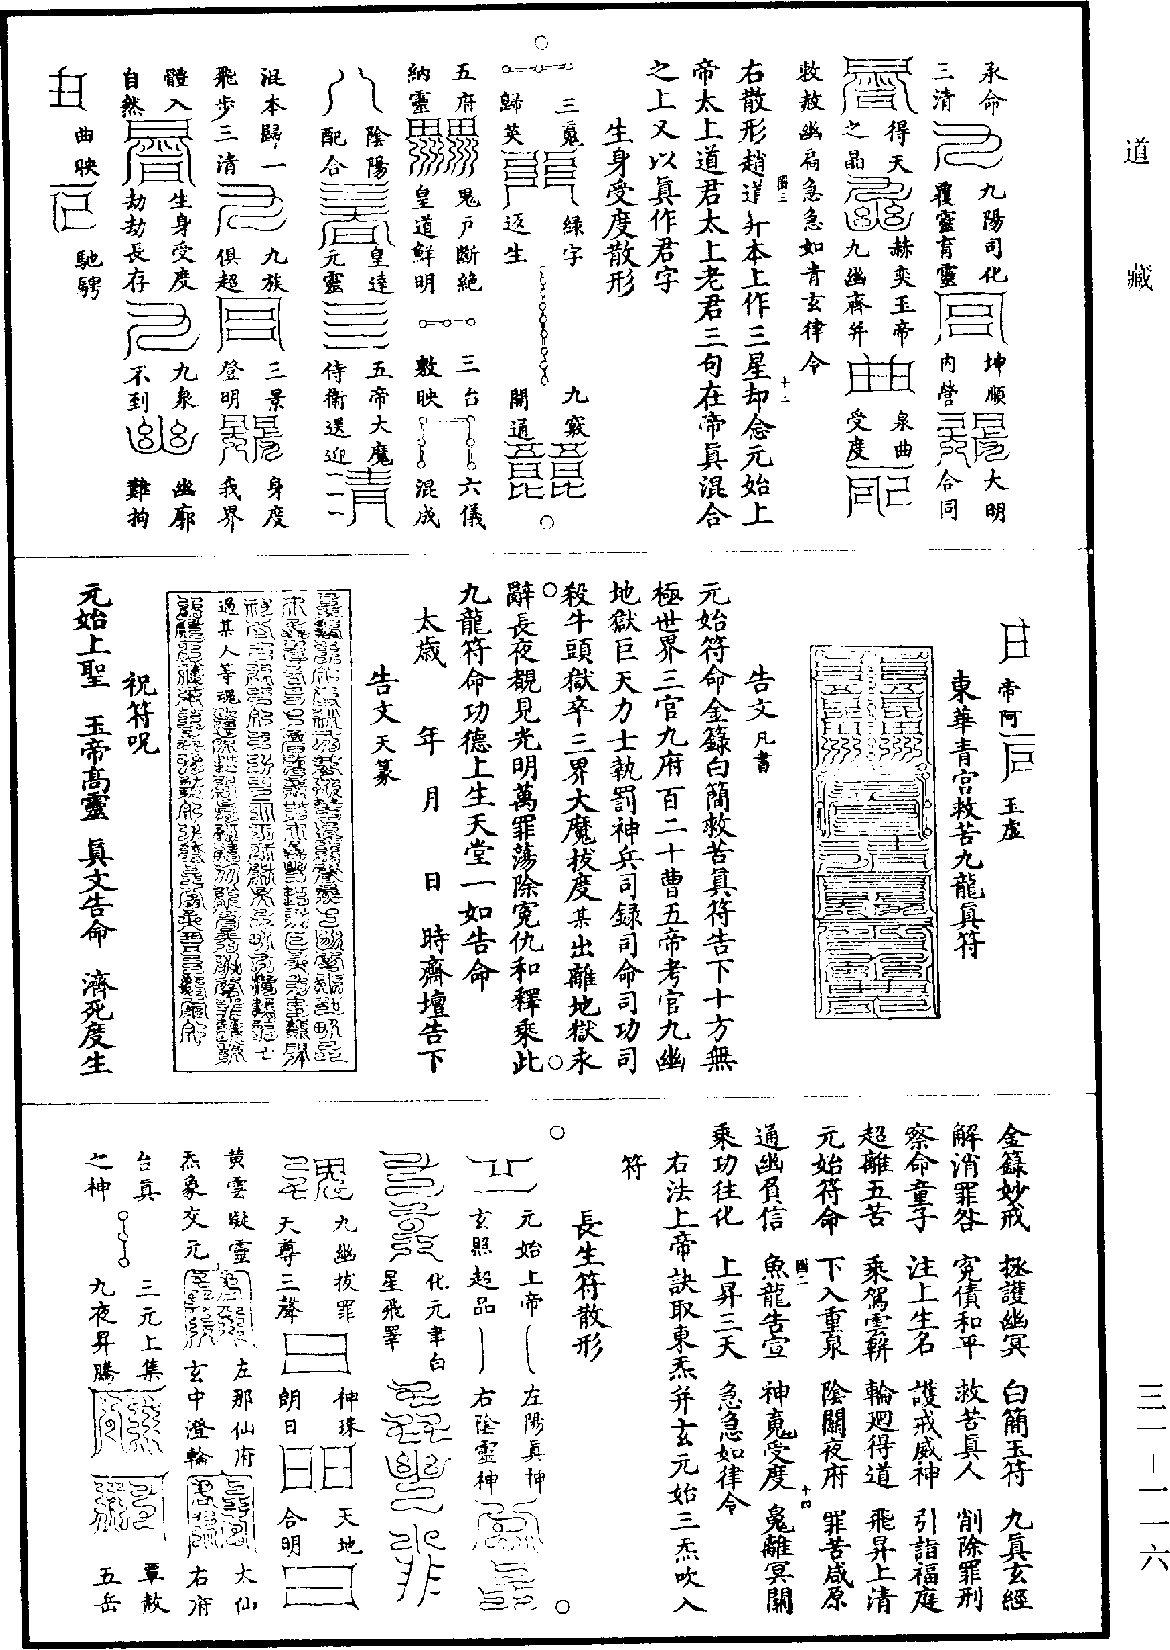 道藏
承命
三清
九陽司化
覆靈育靈
坤順
內營
大明
合同
得天
之晶
赫奕玉帝
九幽齊并
泉曲
受度
敕救幽扃急急如青玄律令
右散形趙道升本上作三星却念元始上
帝太上道君太上老君三句在帝眞混合
之上又以眞作君字
生身受度散形
三䰟
歸英
綠字
逐生
九竅
開通
五府
納靈
鬼戶斷絕
皇道鮮明
三台
敷映
六儀
混成
陰陽
配合
皇達
元靈
五帝大魔
侍衞送迎
混本歸一
飛步三清
九族
俱超
三景
登明
身度
我界
體入
自然
生身受度
劫劫長存
九泉
不到
幽廓
難拘
曲映
馳騁
帝阿
玉虛
東華青宮救苦九龍眞符
告文凡書
元始符命金籙白簡救苦眞符告下十方無
極世界三官九府百二十曹五帝考官九幽
地獄巨天力士執罰神兵司錄司命司功司
殺牛頭獄卒三界大魔拔度某出離地獄永
辭長夜覩見光明萬罪蕩除寃仇和釋乘此
九龍符命功德上生天堂一如告命
太歲 年 月 日 時齋壇告下
告文天篆
過某人等魂
祝符呪
元始上聖 玉帝高靈 眞文告命 濟死度生
金籙妙戒 拯護幽冥 白簡玉符 九眞玄經
解消罪咎 寃債和平 救苦眞人 削除罪刑
察命童子 注上生名 護戒威神 引詣福庭
超離五苦 乘駕雲軿 輪廻得道 飛昇上清
元始符命 下入重泉 陰關夜府 罪苦咸原
通幽質信 魚龍告宣 神䰟受度 䰟離冥關
乘功往化 上昇三天 急急如律令
右法上帝訣取東炁并玄元始三炁吹入
符
長生符散形
元始上帝
玄照超品
左陽眞神
右陰靈神
化元聿白
星飛睪
九幽拔罪
天尊三聲
神珠
朗日
天地
合明
黃雲凝靈
炁象交元
左那仙府
玄中澄輪
太仙
右府
台眞
之神
三元上集
九夜昇騰
覃赦
五岳
三一—一一六